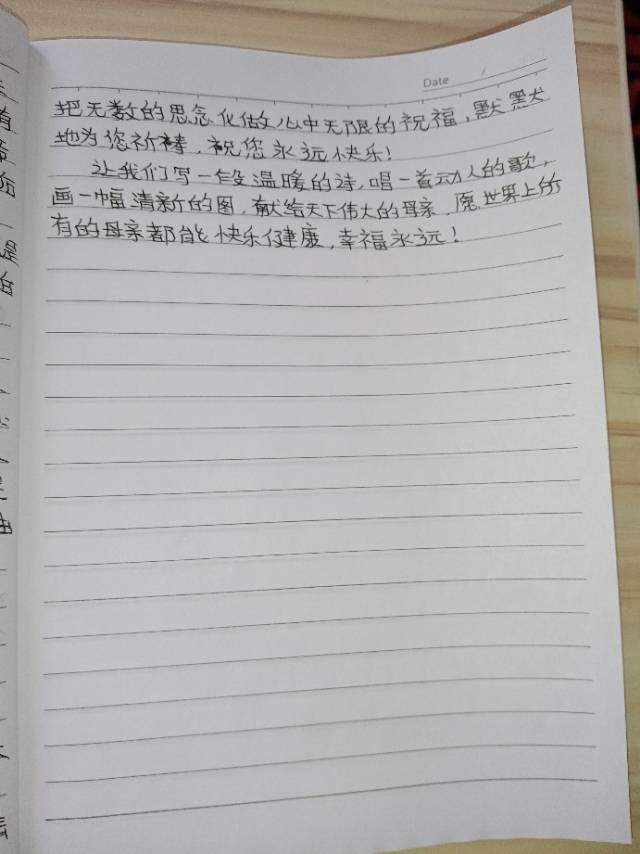 Date /
把无数的思念化做心中无限的祝福,默默
地为您祈祷,祝您永远快乐!
让我们写一段温暖的诗,唱一首动人的歌,
画一幅清新的图,献给天下伟大的母亲,愿世界上所
有的母亲都能快乐健康,幸福永远!